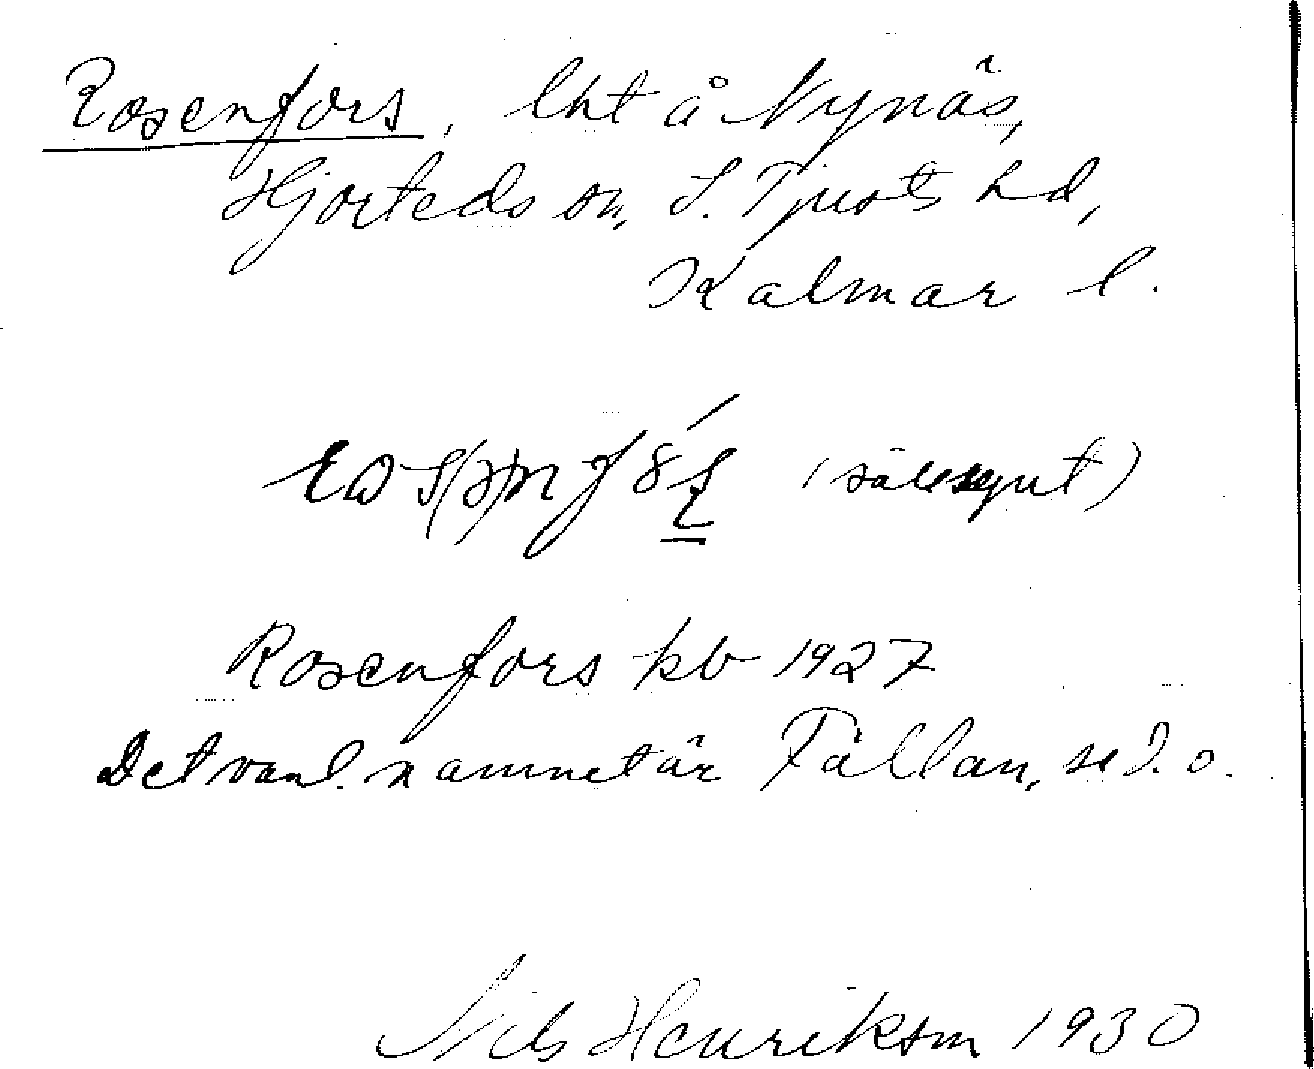 Rosenfors, lht å Nynäs,
Hjorteds sn, S. Tjusts hd,
Kalmar l.
(sällsynt)
Rosenfors kb 1927
Det vanl. namnet är Fållan, se d. o.
Nils Henrikson 1930